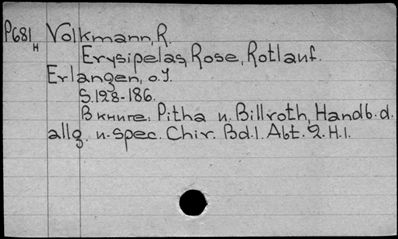 P681 H Volkmann, R.
Erysipelas, Rose, Rotlauf.
Erlangen, o.J.
S.128-186.
В книге, Pitha и. Billroth, Handb. d.
allg. и. spec. Chir. Bd.1. Abt. 2. H.1.